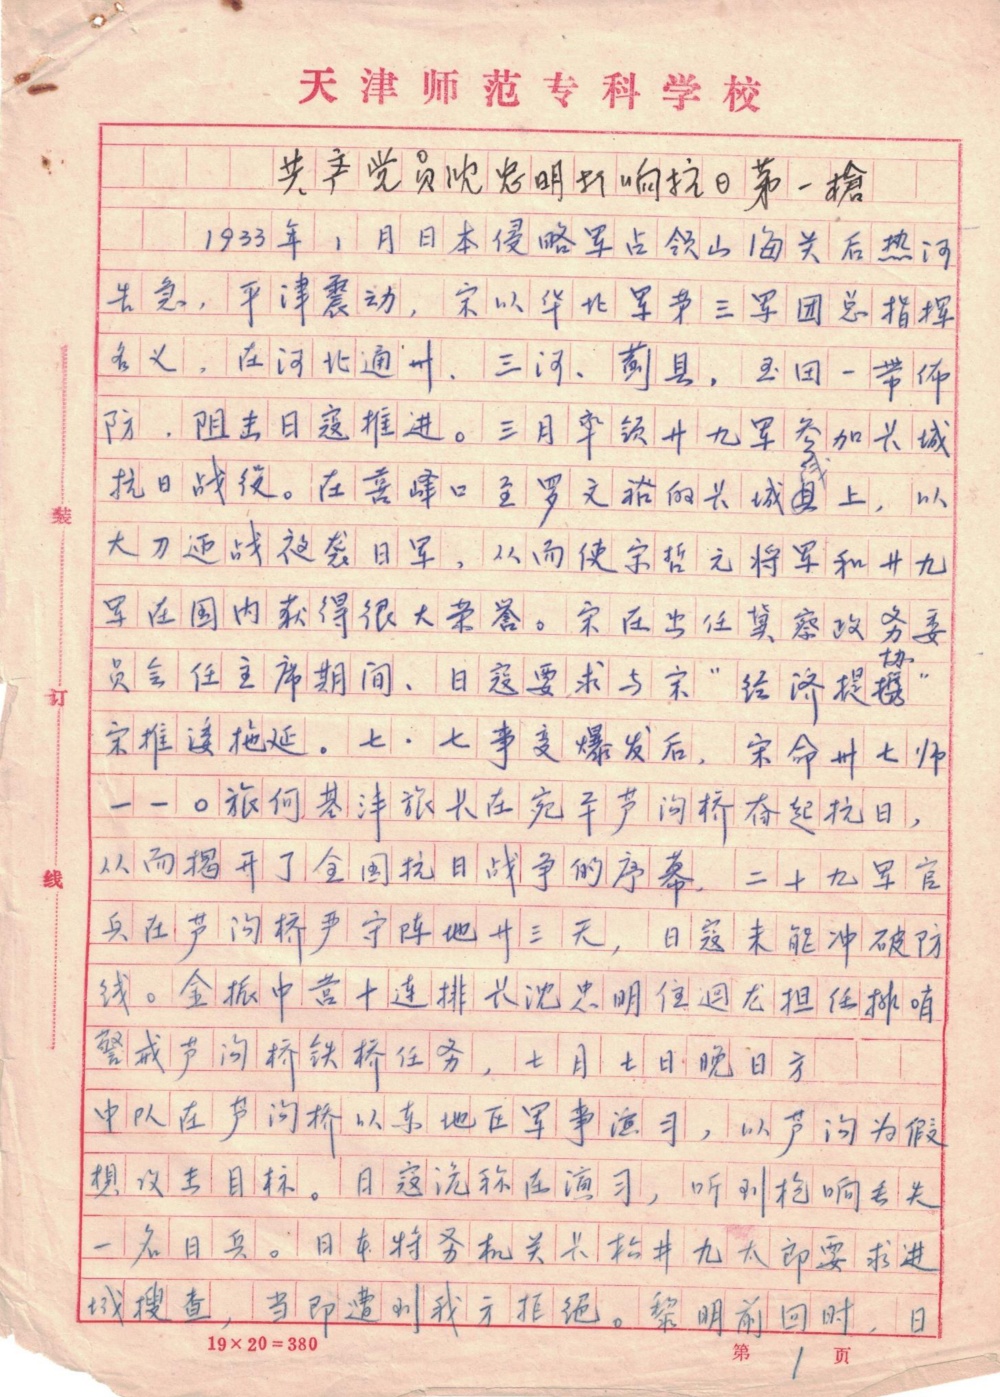 天津师范专科学校
共产党员沈忠明打响抗日第一槍
1933年1月日本侵略军占领山海关后热河
告急，平津震动，宋以华北军第三军团总指挥
名义，在河北通州、三河、蓟县，玉田一带佈
防，阻击日寇推进。三月率领廿九军参加长城
抗日战役。在喜峰口至罗文裕的长城线上，以
大刀迎战夜袭日军，从而使宋哲元将军和廿九
军在国内获得很大荣誉。宋在出任冀察政务委
员会任主席期间、日寇要求与宋“经济提协”
宋推诿拖延。七·七事变爆发后，宋命卅七师
一一〇旅何基沣旅长在宛平芦沟桥奋起抗日，
从而揭开了全国抗日战争的序幕，二十九军官
兵在芦沟桥严守阵地廿三天，日寇未能冲破防
线。金振中营十连排长沈忠明住迴龙担任排哨
警戒芦沟桥铁桥任务，七月七日晚日方
中队在芦沟桥以东地区军事演习，以芦沟为假
想攻击目标。日寇诡称在演习，听到枪响丢失
一名日兵。日本特务机关长松井九太郎要求进
城搜查，当即遭到我方拒绝。黎明前回时，日
装
订
线
19×20=380
第 1 页